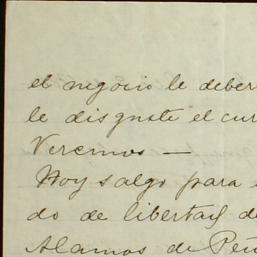 el negocio le deber
le disguste el cur
Veremos —
Hoy salgo para
do de libertad de
Alamos de Peñ